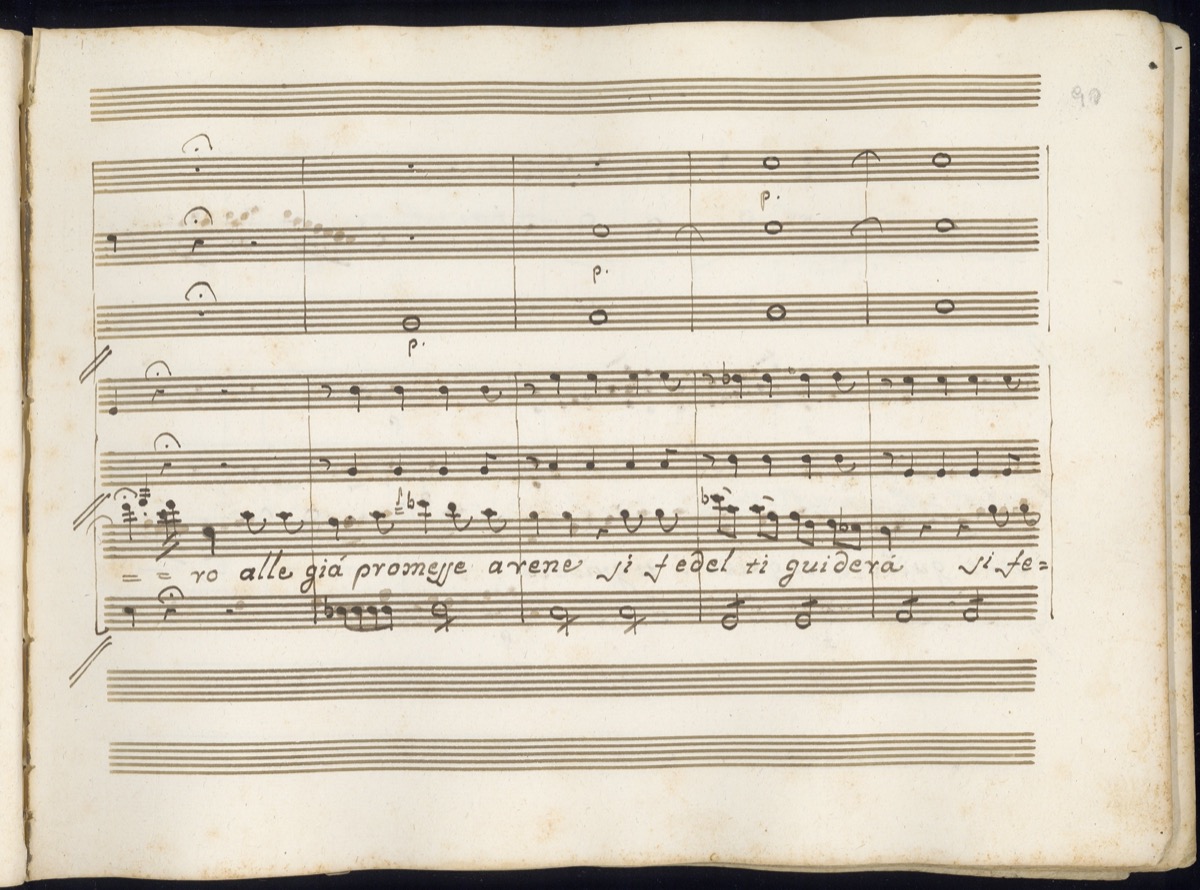 90
p.
p.
p.
= = ro alle giá promesse arene si fedel ti guiderá si fe=